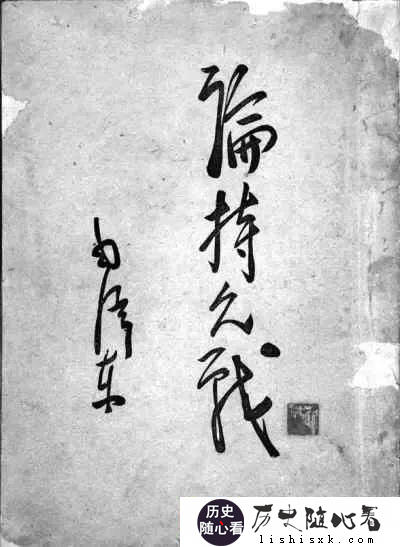 論持久戰
毛澤東
历史
随心看
历史随心看
lishisxk.com